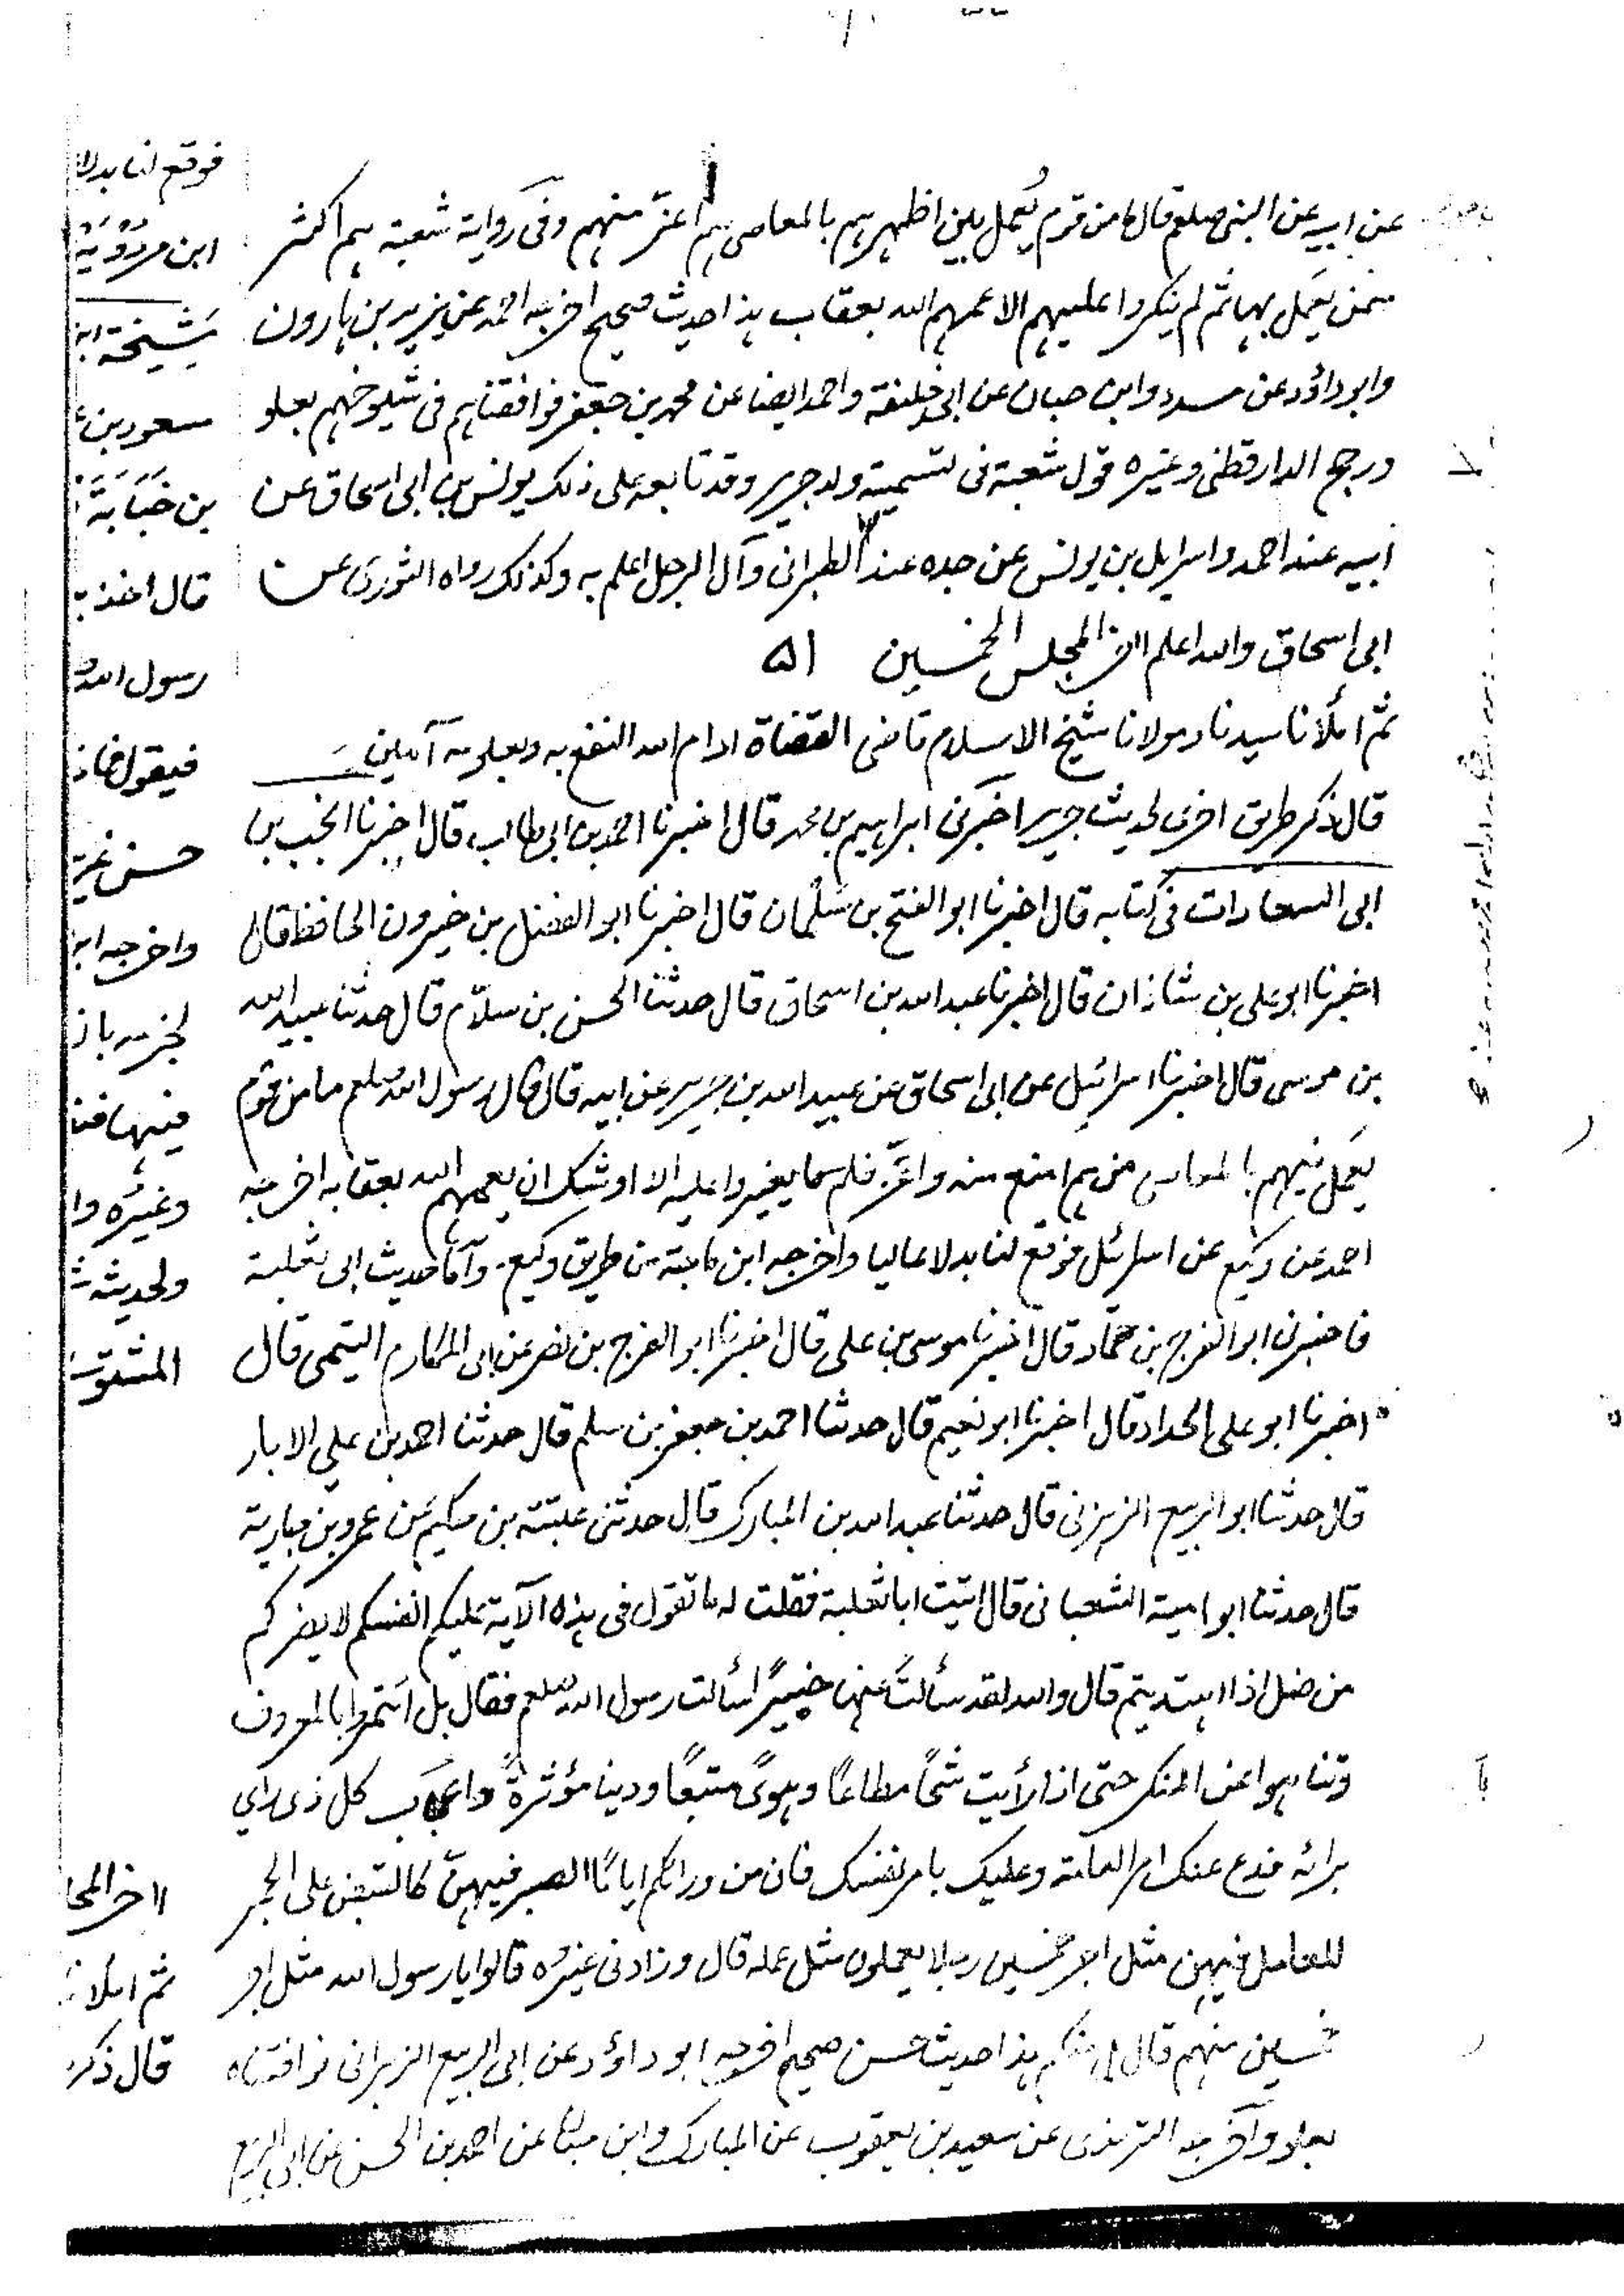 عن ابيه عن النبى صلعم قال ما من قوم يعمل بين اظهرهم بالمعاصى هم اعز منهم وفى رواية شعبة هم اكثر
ممن يعمل بها ثم لم ينكروا عليهم الا عمهم الله بعقاب هذا حديث صحيح اخرجه احمد عن يزيد بن هارون
وابو داؤد عن مسدد وابن حبان عن ابى خليفة واحمد ايضا عن محمد بن جعفر فوافقناهم فى شيوخهم بعلو
ورجح الدارقطنى وغيره قول شعبة فى تسمية ولد جرير وقد تابعه على ذلك يونس بن ابى اسحاق عن
ابيه عند احمد واسرايل بن يونس عن جده عند الطبرانى وآل الرجل اعلم به وكذلك رواه الثورى عن
ابى اسحاق والله اعلم آخر المجلس الخمسين ٥١
ثم املانا سيدنا ومولانا شيخ الاسلام قاضى القضاة ادام الله النفع به وبعلومه آمين
قال ذكر طريق اخرى لحديث جرير اخبرنى ابراهيم بن محمد قال اخبرنا احمد بن ابى طالب قال اخبرنا انجب بن
ابى السعادات فى كتابه قال اخبرنا ابو الفتح بن سلمان قال اخبرنا ابو الفضل بن خيرون الحافظ قال
اخبرنا ابو على بن شاذان قال اخبرنا عبد الله بن اسحاق قال حدثنا الحسن بن سلام قال حدثنا عبيد الله
بن موسى قال اخبرنا اسرائيل عن ابى اسحاق عن عبيد الله بن جرير عن ابيه قال قال رسول الله صلعم ما من قوم
يعمل فيهم بالمعاصى من هم امنع منه واعز فلم يغيروا عليه الا اوشك ان يعمهم الله بعقابه اخرجه
احمد عن وكيع عن اسرائل فوقع لنا بدلا عاليا واخرجه ابن ماجة من طريق وكيع واما حديث ابى ثعلبة
فاخبرنى ابو الفرج بن حماد قال اخبرنا موسى بن على قال اخبرنا ابو الفرج بن نصر عن ابى المكارم التيمى قال
اخبرنا ابو على الحداد قال اخبرنا ابو نعيم قال حدثنا احمد بن جعفر بن سلم قال حدثنا احمد بن علي الابار
قال حدثنا ابو الربيع الزهرانى قال حدثنا عبد الله بن المبارك قال حدثنى عتبة بن حكيم عن عمرو بن جارية
قال حدثنا ابو امية الشعبانى قال اتيت ابا ثعلبة فقلت له ما تقول فى هذه الآية عليكم انفسكم لا يضركم
من ضل اذا اهتديتم قال والله لقد سألت عنها خبيرًا سألت رسول الله صلعم فقال بل ائتمروا بالمعروف
وتناهوا عن المنكر حتى اذا رأيت شحًا مطاعًا وهوىً متبعًا ودنيا مؤثرةً واعجاب كل ذى راي
برائه فدع عنك امر العامة وعليك بامر نفسك فان من ورائكم ايامًا الصبر فيهن كالقبض على الجمر
للعامل فيهن مثل اجر خمسين رجلا يعملون مثل عمله قال وزادنى غيره قالوا يا رسول الله مثل اجر
خمسين منهم قال بل منكم هذا حديث حسن صحيح اخرجه ابو داؤد عن ابى الربيع الزهرانى فوافقناه
بعلو واخرجه الترمذى عن سعيد بن يعقوب عن المبارك وابن حبان عن احمد بن الحسن عن ابى الربيع
فوقع لنا بدلا
ابن مردويه
مشيخة
مسعود بن
بن خبابة
قال اخذ
رسول الله
فيقول
حسن غر
واخرجه ابو

فيها فقا
وغيره وا
ولحديثه
المشقو
آخر المجا
ثم املانا
قال ذكر